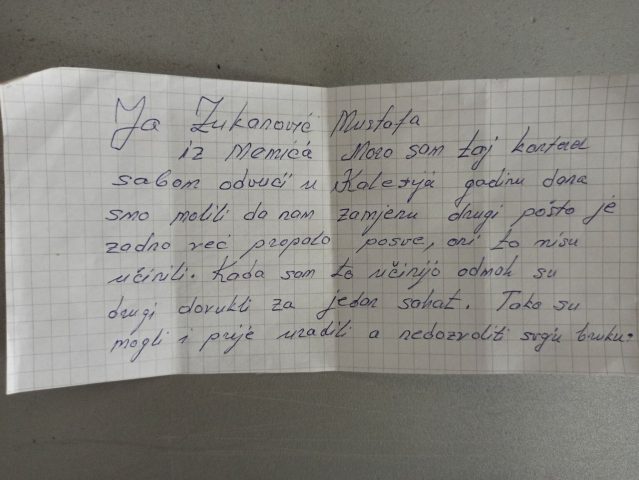 Ja Zukanović Mustafa
iz Memića Moro sam taj kontad
sabom odvući u Kalesija godinu dana
smo molili da nam zamjenu drugi pošto je
zadno već propalo posve, oni to nisu
učinili. Kada sam to učinijo odmah su
drugi dovukli za jedan sahat. Tako su
mogli i prije uradili a nedozvoliti svoju bruku.